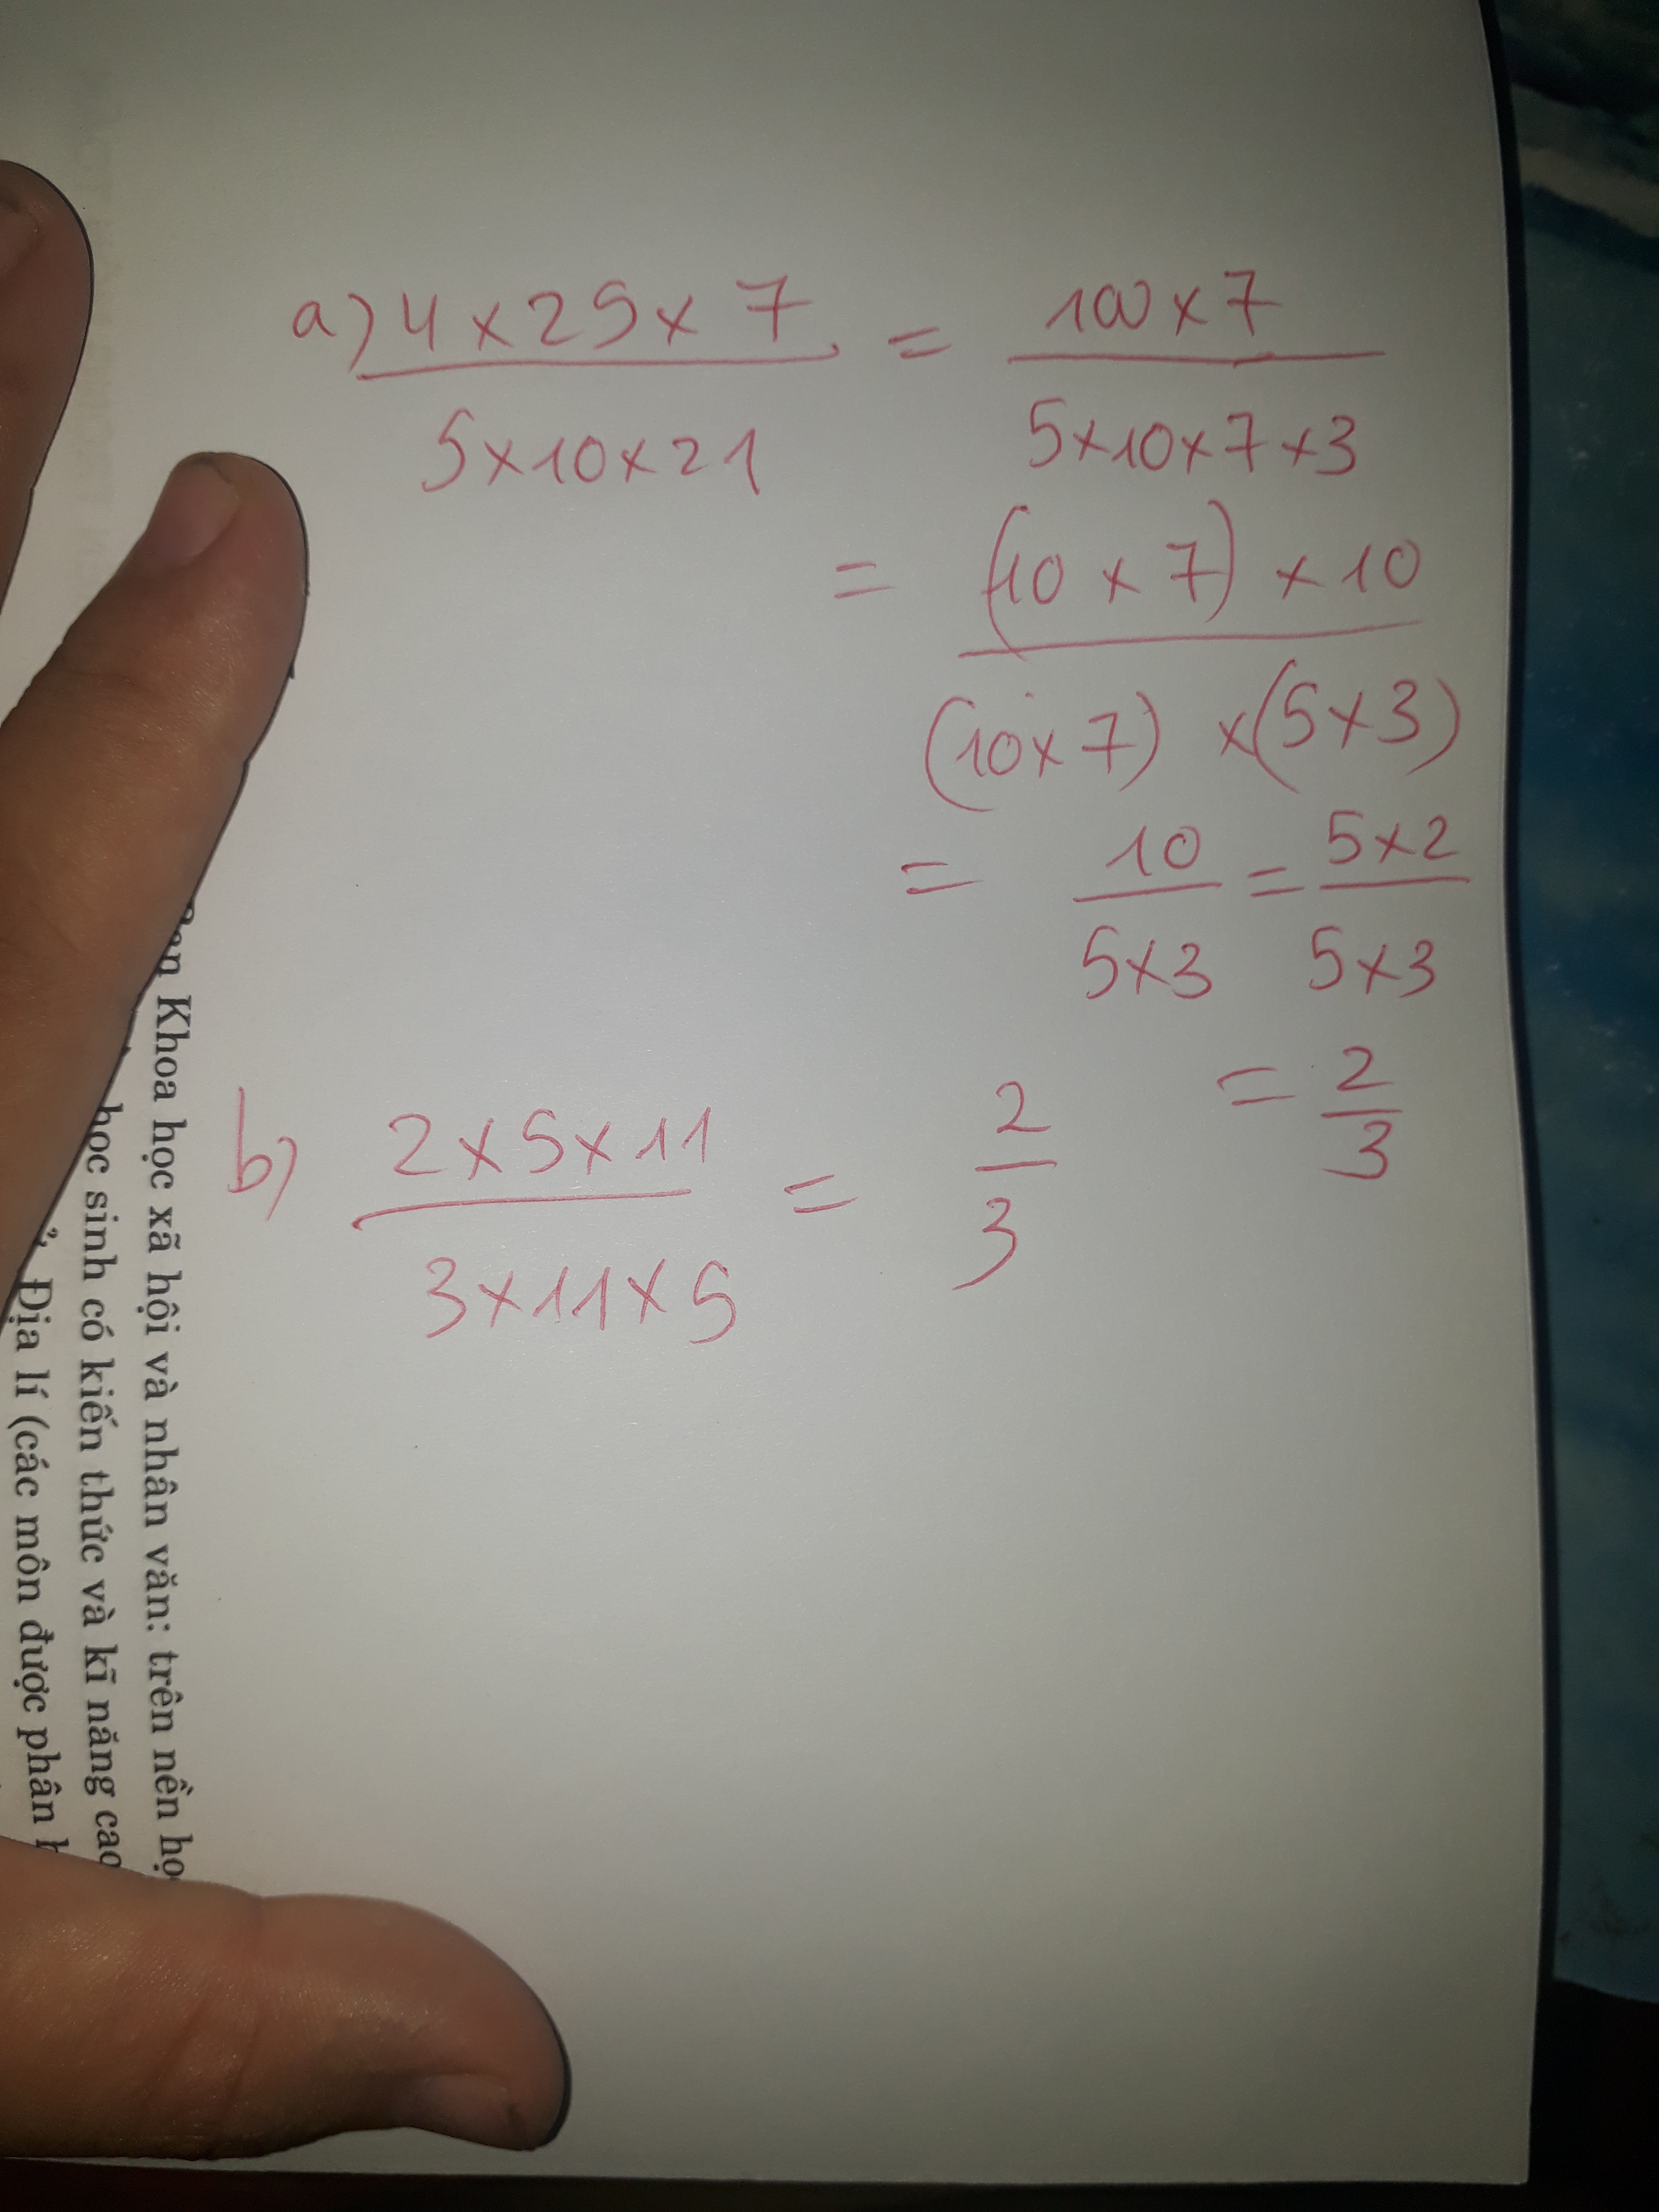 a) 4 x 25 x 7 / 5 x 10 x 21 = 100 x 7 / 5 x 10 x 7 x 3
= (10 x 7) x 10 / (10 x 7) x (5 x 3)
= 10 / 5 x 3 = 5 x 2 / 5 x 3
= 2 / 3
b) 2 x 5 x 11 / 3 x 11 x 5 = 2 / 3
Khoa học xã hội và nhân văn: trên nền
học sinh có kiến thức và kĩ năng cao
Địa lí (các môn được phân